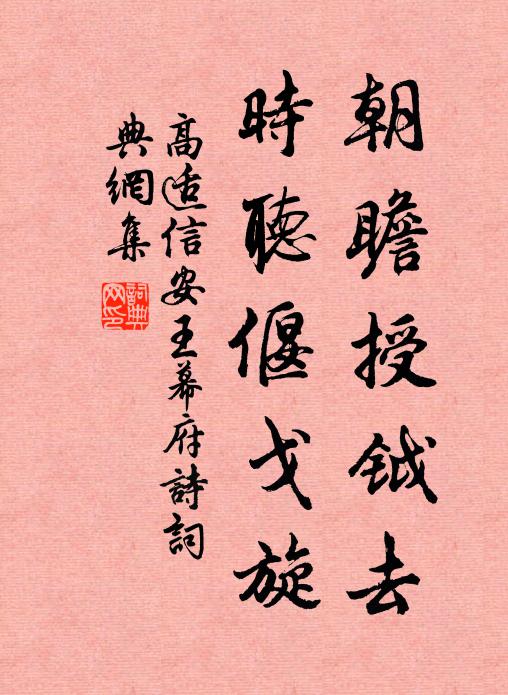 朝瞻授鉞去
時聽偃戈旋
高适信安王幕府詩詞
典網集
詞典網印